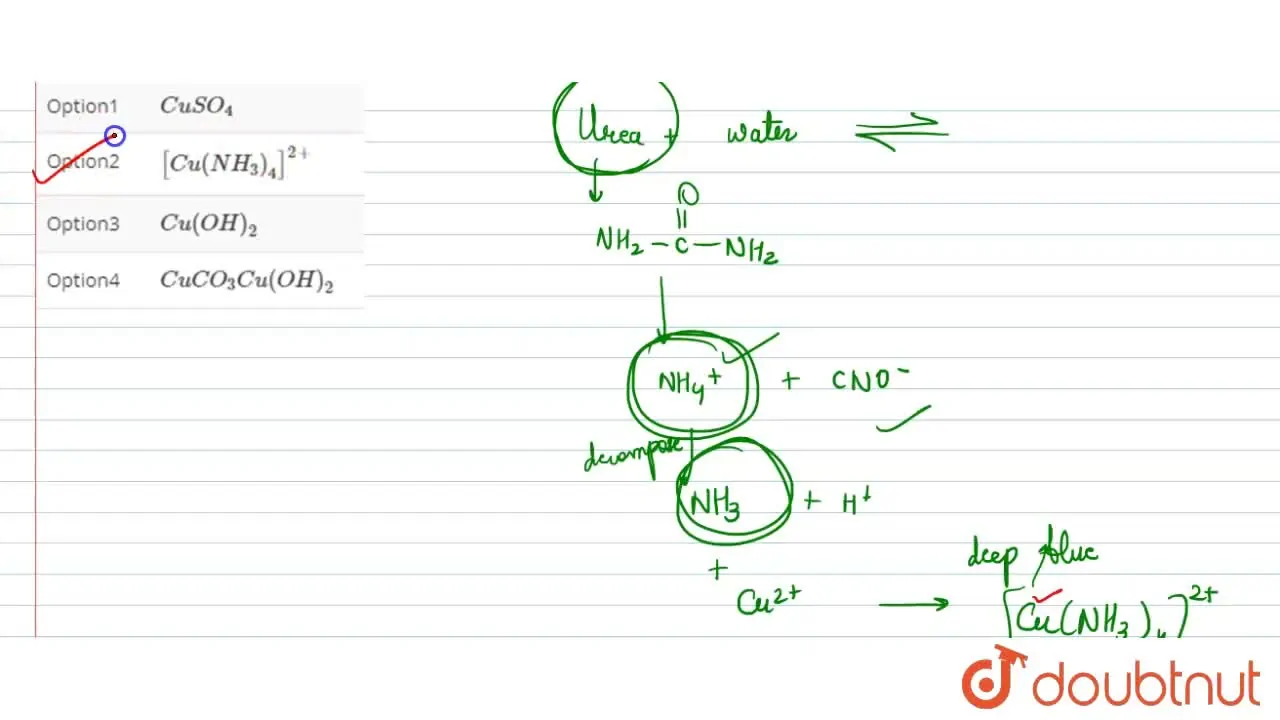 Option1 CuSO₄
Option2 [Cu(NH₃)₄]²⁺
Option3 Cu(OH)₂
Option4 CuCO₃Cu(OH)₂
Urea + water ⇌
↓
O
||
NH₂ — C — NH₂
↓
NH₄⁺ + CNO⁻
decompose ↓
NH₃ + H⁺
+
deep blue
Cu²⁺ → [Cu(NH₃)₄]²⁺
doubtnut